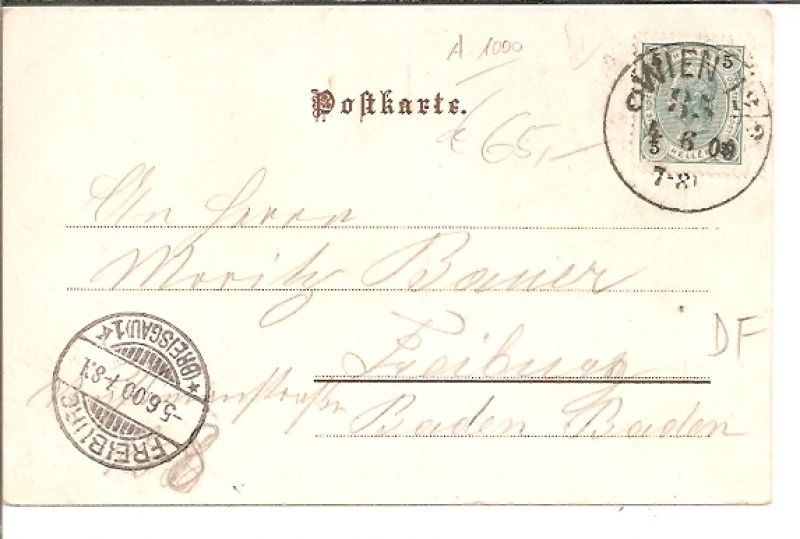 A 1000
Postkarte.
€ 65,-
5 5
WIEN
6 00
7-8
HELLER
5
An Herrn
Moritz Bauer
Freiburg
Baden Baden
DF
(BREISGAU) 1
-5.6.00.7-8.V.
FREIBURG